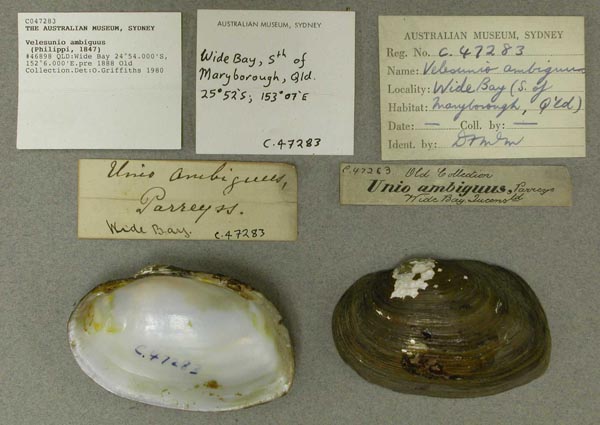 C047283
THE AUSTRALIAN MUSEUM, SYDNEY
Velesunio ambiguus
(Philippi, 1847)
#46898 QLD:Wide Bay 24°54.000'S,
152°6.000'E.pre 1888 Old
Collection.Det:O.Griffiths 1980
AUSTRALIAN MUSEUM, SYDNEY
Wide Bay, Sth of
Maryborough, Qld.
25°52'S; 153°07'E
C.47283
AUSTRALIAN MUSEUM, SYDNEY
Reg. No. C.47283
Name: Velesunio ambiguus
Locality: Wide Bay (S. of
Habitat: Maryborough, Q'ld)
Date: — Coll. by: —
Ident. by:
Unio ambiguus,
Parreyss.
Wide Bay. C.47283
C.47283 Old Collection
Unio ambiguus, Parreys
Wide Bay. Queensld
C.47283